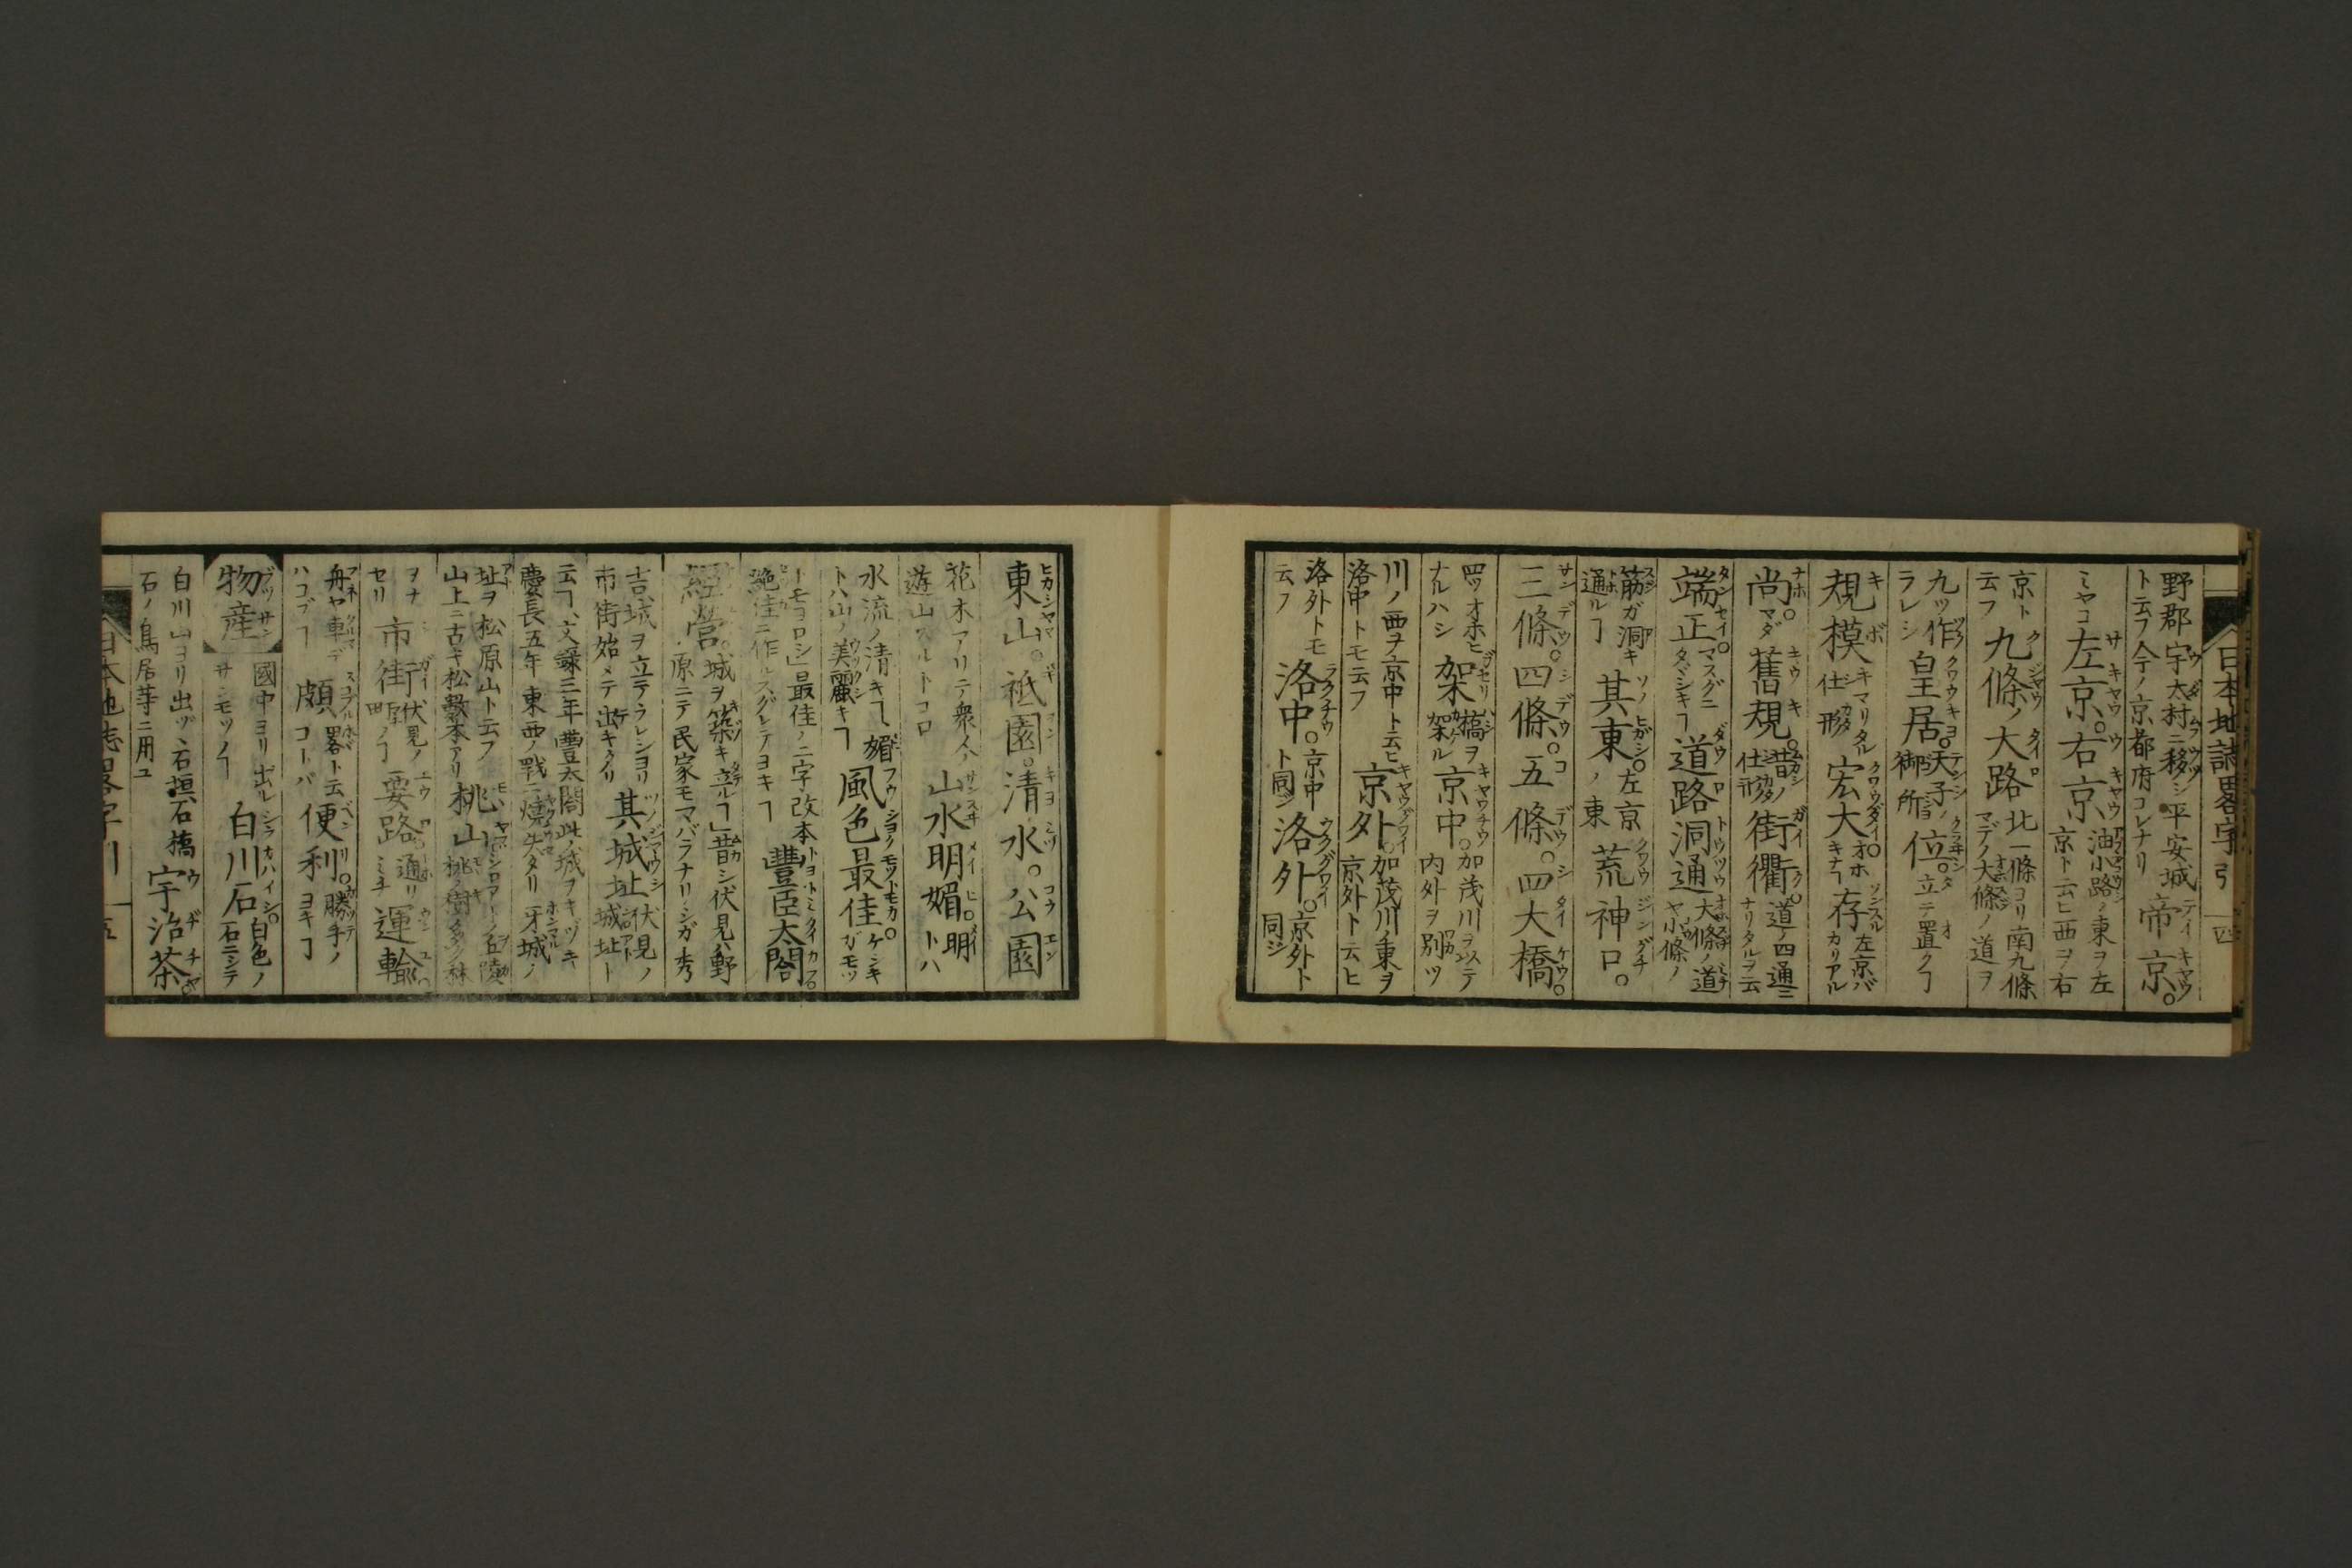 日本地誌畧字引 四
野郡宇太村ニ移シ平安城
ト云フ今ノ京都府コレナリ
帝京。
ミヤコ
左京。右京
油小路ノ東ヲ左
京ト云ヒ西ヲ右
京ト
云フ
九條ノ大路
北一條ヨリ南九條
マデノ大條ノ道ヲ
九ツ作
ラレシ
皇居。
天子ノ
御所
位。
立テ置クヿ
規模
キマリタル
仕形
宏大。
オホ
キナヿ
存
左京バ
カリアル
尚。
マダ
舊規。
昔シノ
仕形
街衢。
道ノ四通ニ
ナリタルヲ云
端正。
マスグニ
タダシキヿ
道路洞通
大條ノ道
ヤ小條ノ
筋ガ洞キ
通ルヿ
其東。
左京
ノ東
荒神口。
三條。四條。五條。四大橋。
四ツオホヒ
ナルハシ
架
橋ヲ
架ル
京中。
加茂川ヲステ
内外ヲ別ツ
川ノ西ヲ京中ト云ヒ
洛中トモ云フ
京外。
加茂川東ヲ
京外ト云ヒ
洛外トモ
云フ
洛中。
京中
ト同ジ
洛外。
京外ト
同ジ
東山。祗園。清水。公園
花木アリテ衆人ノ
遊山スルトコロ
山水明媚
明
トハ
水流ノ清キヿ、媚
トハ山ノ美麗キヿ
風色最佳。
ケシキ
ガモツ
トモヨロシ」最佳ノ二字改本
絶佳ニ作ルスグレテヨキヿ
豐臣太閤。
經營。
城ヲ築キ立ルヿ」昔シ伏見ハ野
原ニテ民家モマバラナリシガ秀
吉城ヲ立テラレシヨリ
市街始メテ出キタリ
其城址
伏見ノ
城址ト
云ヿ、文録三年豐太閤此ノ城ヲキヅキ
慶長五年東西ノ戰ニ燒失タリ牙城ノ
址ヲ松原山ト云フ
山上ニ古キ松數本アリ
桃山
シロアトノ丘陵
桃ノ樹ノ多ク林
ヲナ
セリ
市街
伏見ノ
町ノヿ
要路
通リ
ミチ
運輸
舟ヤ車デ
ハコブヿ
頗
畧ト云
コトバ
便利。
勝手ノ
ヨキヿ
物産
國中ヨリ出ル
サンモツノヿ
白川石
白色ノ
石ニシテ
白川山ヨリ出ヅ、石垣石橋
石ノ鳥居等ニ用ユ
宇治茶。
日本地誌畧字引 五